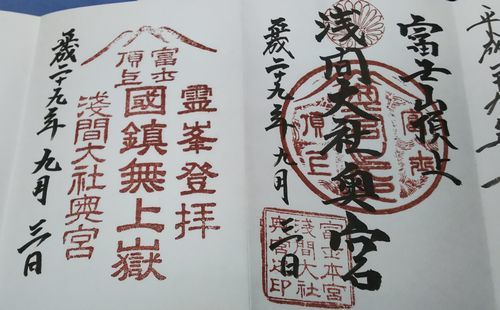 平成二十
富士山頂上
浅間大社奥宮
平成二十九年 九月 三日
富士
頂上
富士本宮
浅間大社
奥宮之印
靈峯登拝
富士
頂上
國鎮無上嶽
淺間大社奥宮
平成二十九年 九月 三日